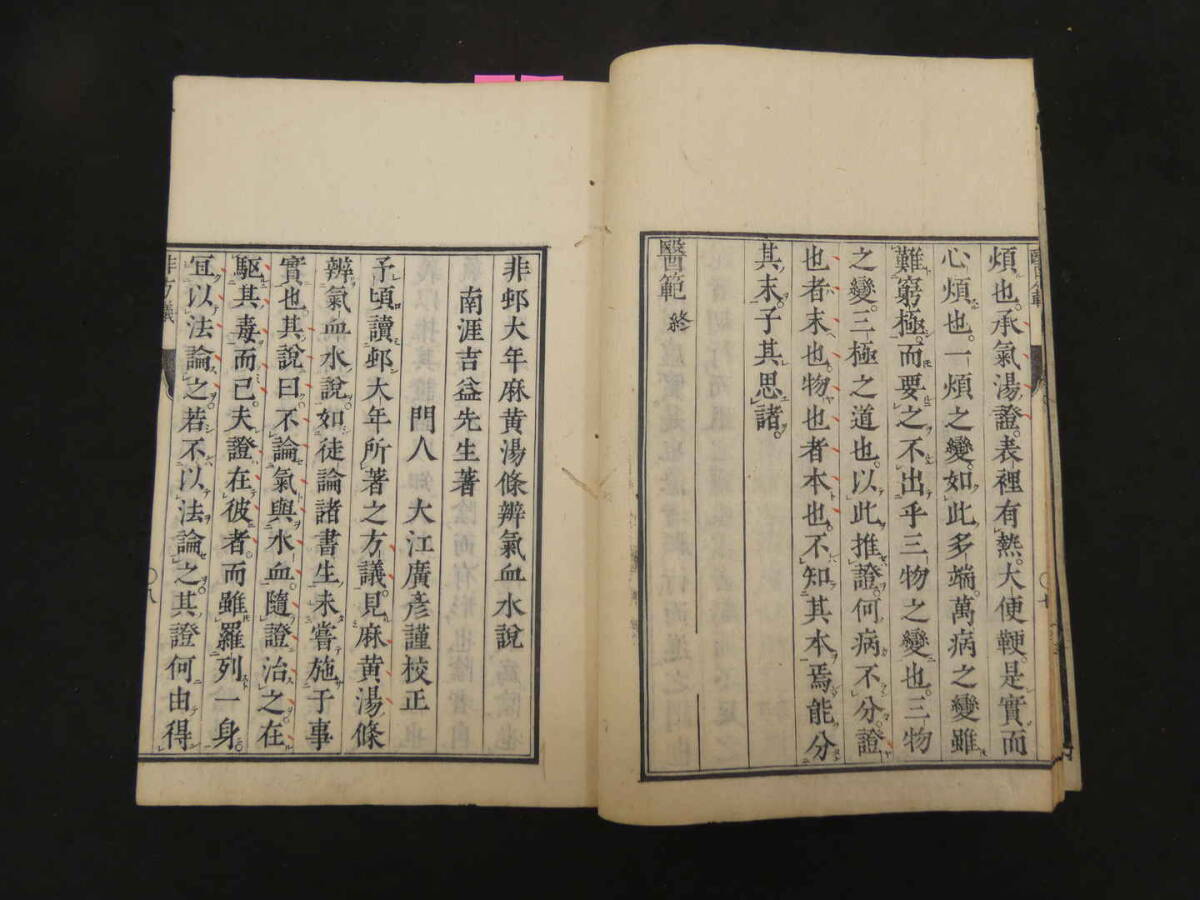 煩也。承氣湯證。表裡有熱。大便鞕。是實而
心煩也。一煩之變。如此多端。萬病之變。雖
難窮極。而要之不出乎三物之變也。三物
之變。三極之道也。以此推證。何病不分。證
也者末也。物也者本也。不知其本。焉能分
其末。子其思諸。
醫範 終
非邨大年麻黃湯條辨氣血水說
南涯吉益先生著
門人 大江廣彥謹校正
予頃讀邨大年所著之方議。見麻黃湯條
辨氣血水說。如徒論諸書生。未嘗施于事
實也。其說曰。不論氣與水血。隨證治之。在
驅其毒而已。夫證在彼者。而雖羅列一身。
冝以法論之。若不以法論之。其證何由得
非方議
八